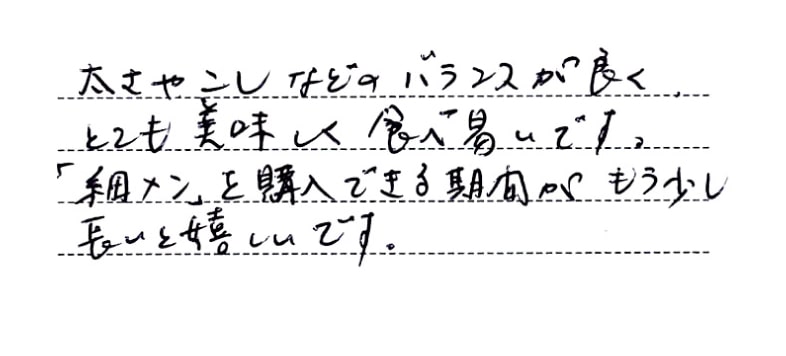 太さやこしなどのバランスが良く、
とても美味しく食べ易いです。
「細メン」を購入できる期間がもう少し
長いと嬉しいです。